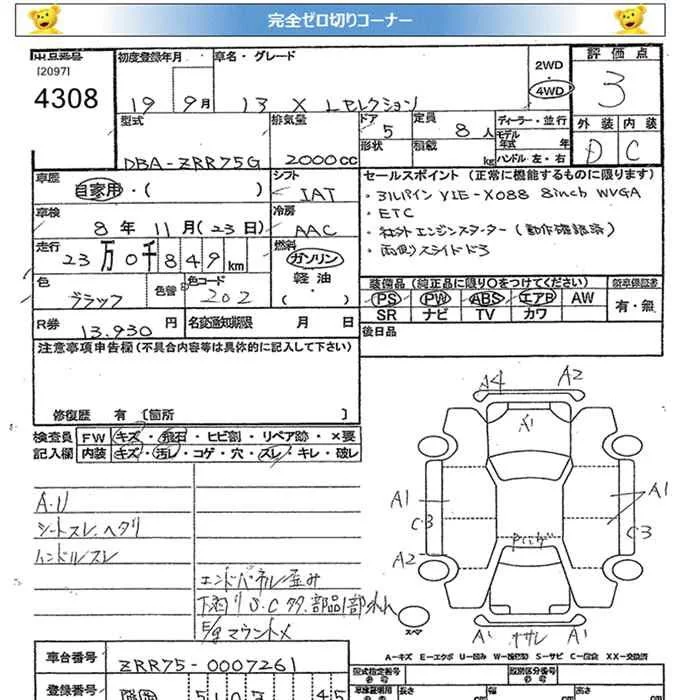 完全ゼロ切りコーナー
出品番号
[2097]
4308
初度登録年月
19 9月
車名・グレード
13 X Lセレクション
2WD
4WD
評価点
3
外装 内装
D C
型式
DBA-ZRR75G
排気量
2000cc
ドア
5
形状
定員
8人
積載
kg
ディーラー・並行
モデル年式 年
ハンドル 左・右
車歴
自家用・( )
シフト
IAT
車検
8年 11月(23日)
冷房
AAC
走行
23万0千849km
燃料
ガソリン
軽油
・( )
色
ブラック
色替
色コード
202
R券
13.930円
名変通知期限 月 日
セールスポイント (正常に機能するものに限ります)
・アルパイン VIE-X088 8inch WVGA
・ETC
・社外エンジンスターター(動作確認済)
・両側スライドドア
装備品(純正品に限り○をつけてください)
PS PW ABS エアB AW
SR ナビ TV カワ
新車保証書
有・無
後日品
注意事項申告欄(不具合内容等は具体的に記入して下さい)
修復歴 有 [箇所 ]
検査員
記入欄
FW キズ・飛石・ヒビ割・リペア跡・×要
内装 キズ・汚レ・コゲ・穴・スレ・キレ・破レ
A.U
シートスレ.ヘタリ
ハンドルスレ
エンドパネル歪み
下廻り S.C クタ.部品1部外れ
E/gマウントメ
A4 A2
A1
A1 A1
C.3 C3
A2
A1 ササレ A1
スペア
A-キズ E-エクボ U-凹み W-補修跡 S-サビ C-腐食 XX-交換済
車台番号
ZRR75-0007261
登録番号
型式指定番号
類別区分番号
長さ cm
幅 cm
高さ cm